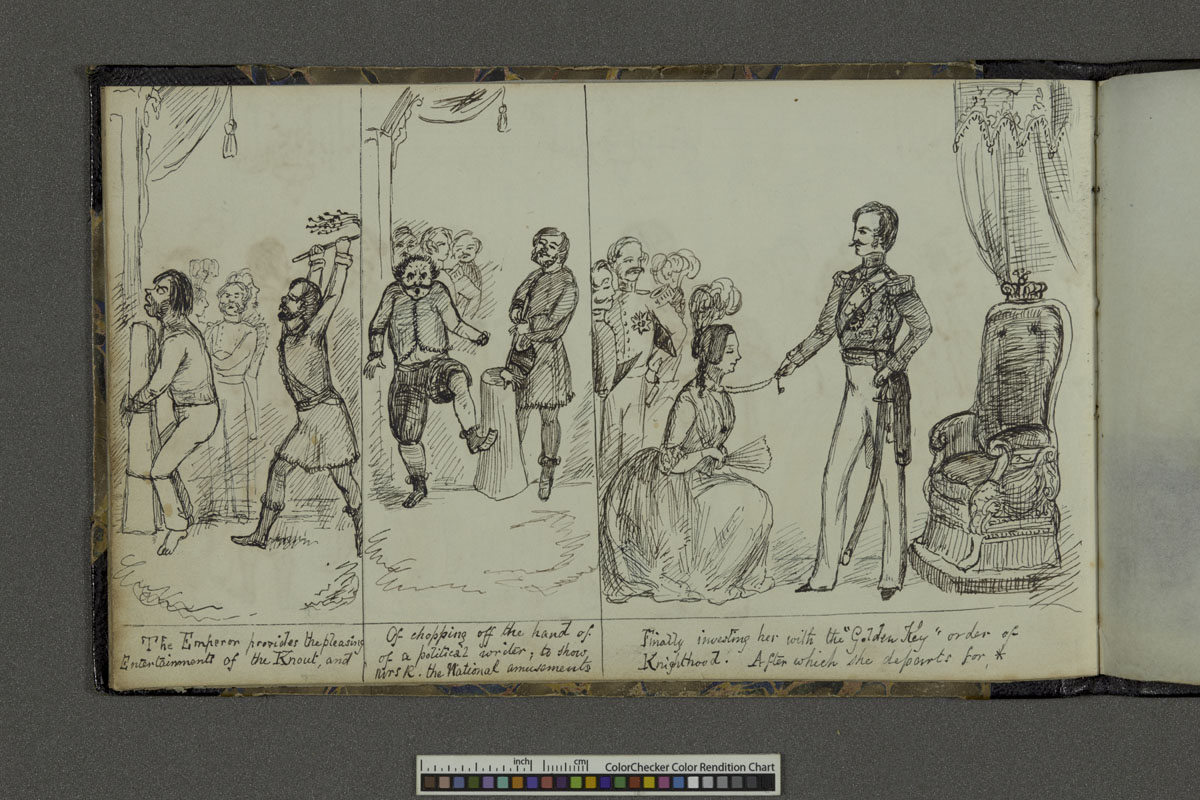 The Emperor provides the pleasing
Entertainments of the Knout, and
Of chopping off the hand of
of a political writer; to show,
Mrs K. the National amusements
Finally investing her with the "Golden Key" order of
Knighthood. After which she departs for, *
inch
cm
ColorChecker Color Rendition Chart